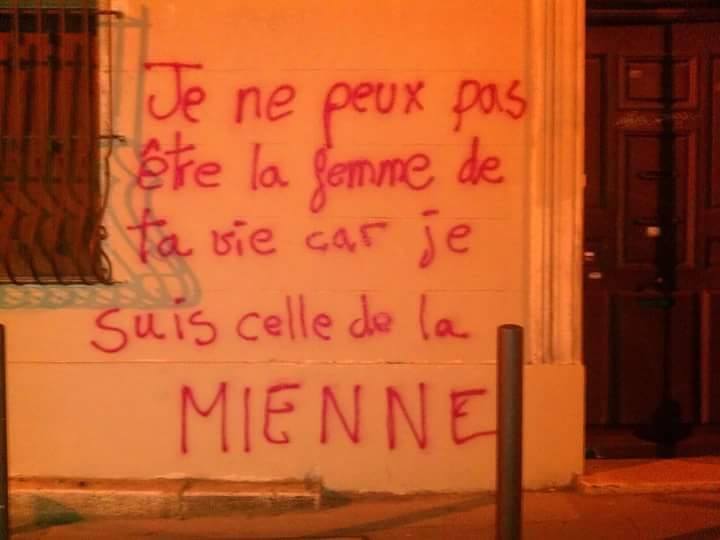 Je ne peux pas
être la femme de
ta vie car je
suis celle de la
MIENNE